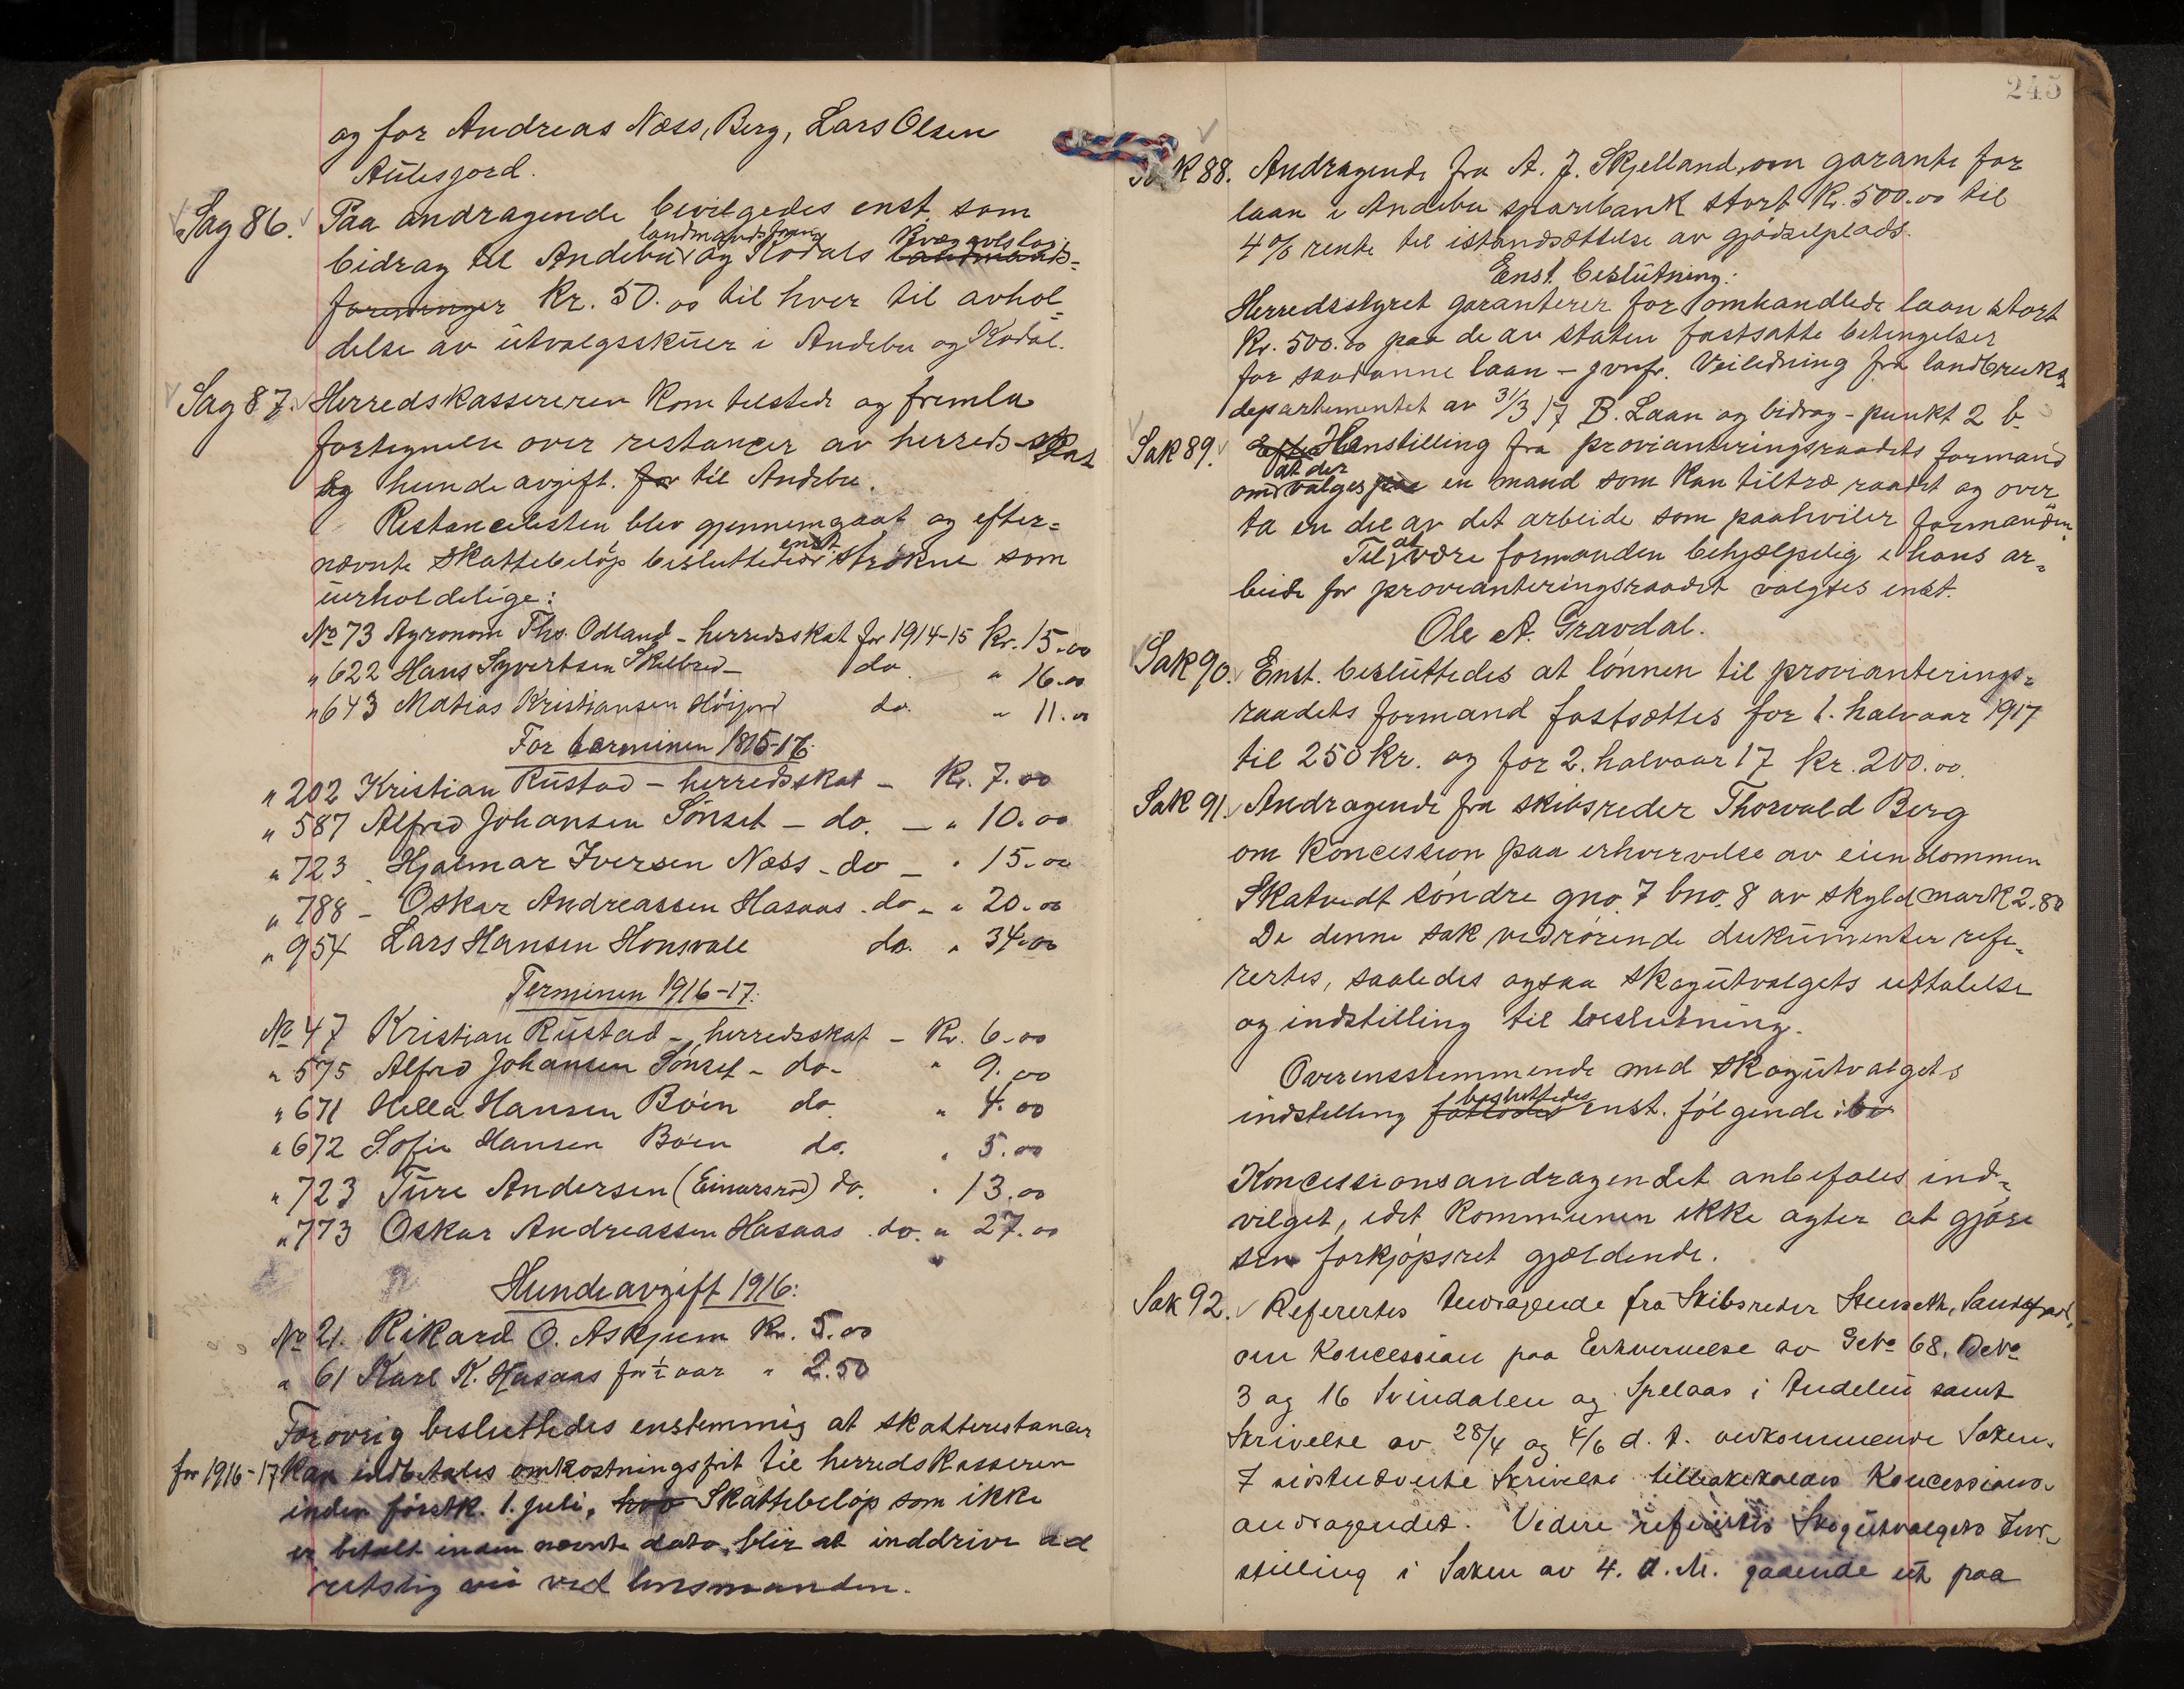 og for Andreas Næss, Berg, Lars Olsen
Aulesjord.
Sag 86. Paa andragende bevilgedes enst. som
landmandsforen. kvægavlslag
bidrag til Andebu og Kodals landmands-
foreninger Kr. 50.00 til hver til avhol-
delse av utvalgsskuer i Andebu og Kodal.
Sag 87. Herredskassereren kom tilstede og fremla
fortegnelse over restancer av herreds-skat
og hundeavgift. for til Andebu.
Restancelisten blev gjennemgaat og efter-
enst
nævnte skattebeløp besluttedes strøkne som
uerholdelige:
No 73 Agronom Ths. Odland - herredsskat for 1914-15 Kr. 15.00
" 622 Hans Syvertsen Skilbred - do. " 16.00
" 643 Matias Kristiansen Höijord do. " 11.00
For terminen 1815-16:
" 202 Kristian Rustad - herredsskat - Kr. 7.00
" 587 Alfred Johansen Sönset - do. - " 10.00
" 723 Hjalmar Iversen Næss - do - " 15.00
" 788 - Oskar Andreassen Hasaas - do - " 20.00
" 954 Lars Hansen Honsvale do. " 34.00
Terminen 1916-17:
No 47 Kristian Rustad - herredsskat - Kr. 6.00
" 575 Alfred Johansen Sönset - do - " 9.00
" 671 Hella Hansen Böen do " 4.00
" 672 Sofie Hansen Böen do. " 5.00
" 723 Ture Andersen (Einarsröd) do. " 13.00
" 773 Oskar Andreassen Hasaas do. " 27.00
Hundeavgift 1916:
No 21. Rikard O. Askjum Kr. 5.00
" 61 Karl K. Hasaas for ½ aar " 2.50
Forövrig besluttedes enstemmig at skatterestancer
for 1916-17 kan indbetales omkostningsfrit til herredskasseren
inden förstk. 1. juli, hvo Skattebeløp som ikke
er betalt inden nævnte dato, blir at inddrive ad
retslig vei ved lensmanden.
245
Sak 88. Andragende fra A. J. Skjelland, om garanti for
laan i Andebu sparebank stort Kr. 500.00 til
4 % rente til istandsættelse av gjödselplads.
Enst. beslutning:
Herredsstyret garanterer for omhandlede laan stort
Kr. 500.00 paa de av staten fastsatte betingelser
for saadanne laan - jvnfr. Veiledning fra landbruks
departementet av 31/3 17 B. Laan og bidrag - punkt 2 b
Sak 89. Efter Henstilling fra provianteringsraadets formand
at der
om vælges paa en mand som kan tiltræ raadet og over
ta en del av det arbeide som paahviler formanden.
at
Til være formanden behjælpelig i hans ar-
beide for provianteringsraadet valgtes enst.
Ole A. Gravdal.
Sak 90. Enst. besluttedes at lönnen til provianterings-
raadets formand fastsættes for 1. halvaar 1917
til 250 kr. og for 2. halvaar 17 kr. 200.00.
Sak 91. Andragende fra skibsreder Thorvald Berg
om koncession paa erhvervelse av eiendommen
Skatvedt söndre gno. 7 bno. 8 av skyld mark 2.80
De denne sak vedrörende dukumenter refe-
rertes, saaledes ogsaa skogutvalgets uttalelse
og indstilling til beslutning.
Overensstemmende med skogutvalgets
besluttedes
indstilling fatledes enst. fölgende: be
Koncessionsandragendet anbefales ind-
vilget, idet kommunen ikke agter at gjöre
sin forkjöpsret gjældende.
Sak 92. Referertes Andragende fra Skibsreder Stenseth, Sandefjord,
om Koncession paa Erhvervelse av GNo 68. BNo
3 og 16 Svindalen og Spelaas i Andebu samt
Skrivelse av 28/4 og 4/6 d. A. vedkommende Saken.
I sidstnævnte Skrivelse tilbakekaldes Koncessions-
andragendet. Videre refertes Skogutvalgets Ind-
stilling i Saken av 4. d. M. gaaende ut paa